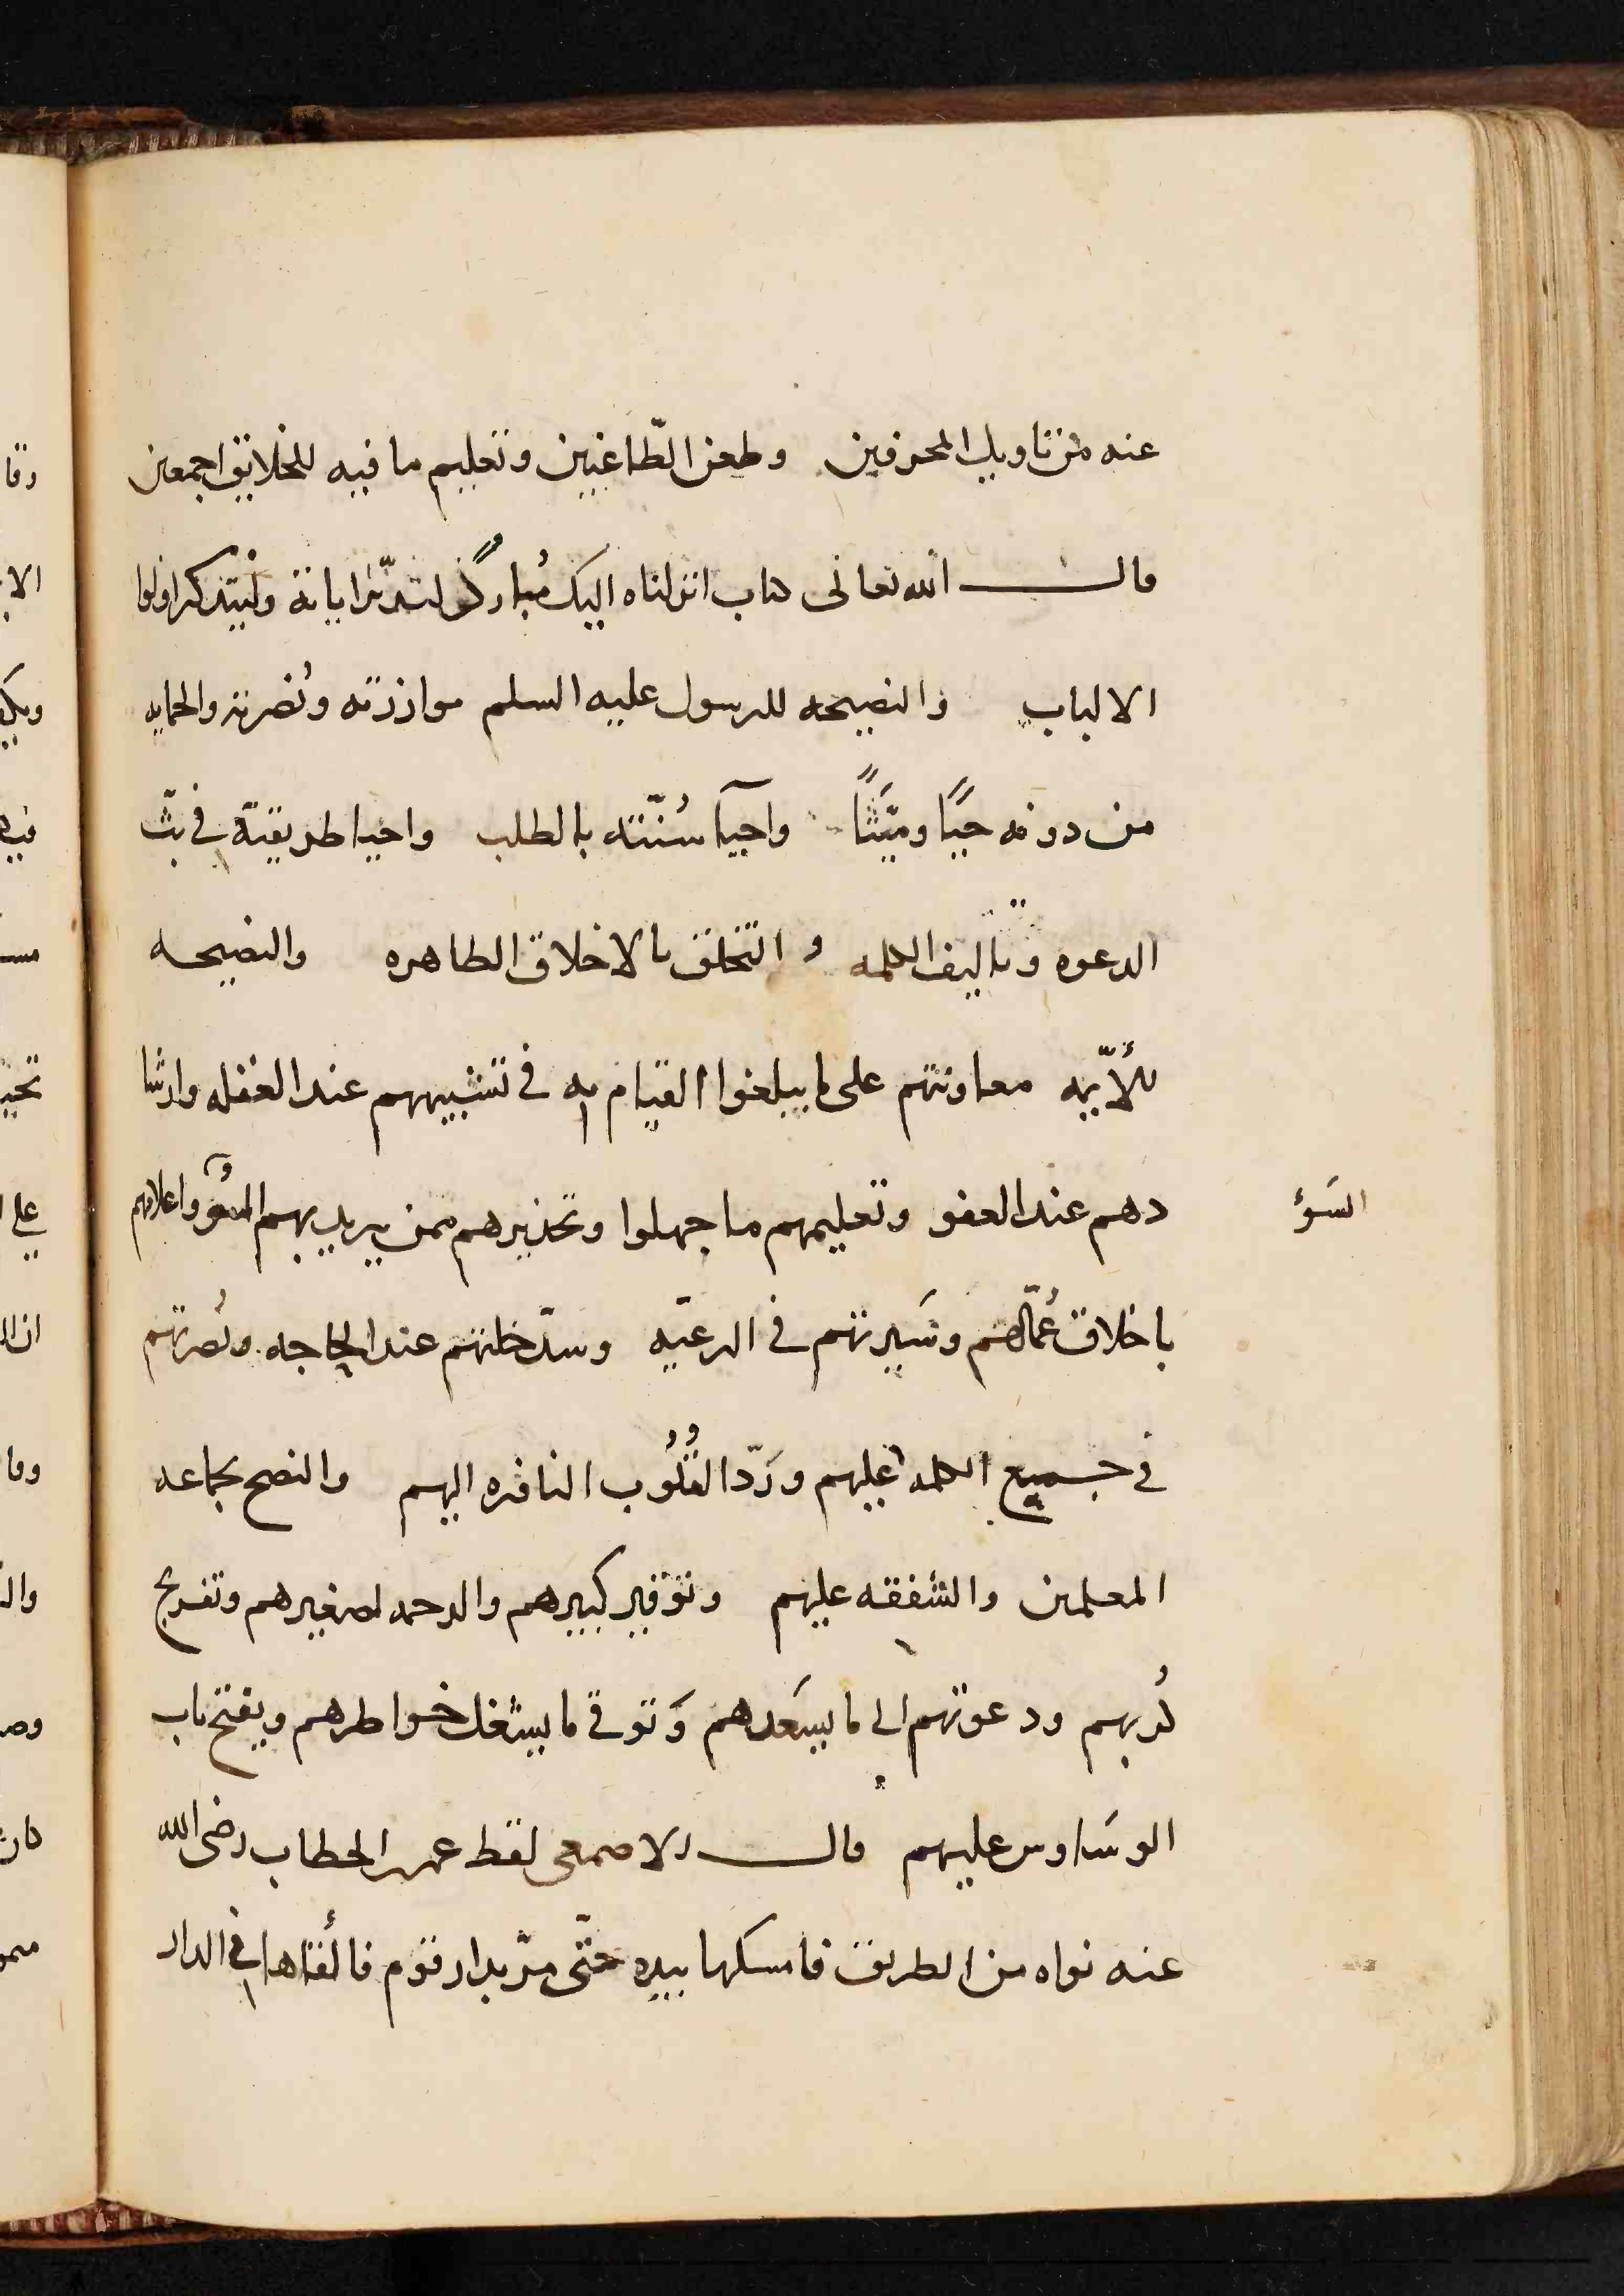 عنه من تاويل المحرفين وطعن الطّاغيين وتعليم ما فيه للخلايق اجمعين
قال الله تعالى كتاب انزلناه اليك مُباركٌ لتدبّرا اياته وليتذكر اولوا
الالباب والنصيحه للرسول عليه السلم موازرته ونُصرته والحمايه
من دونه حيًّا وميّتًا واحيآ سُنّته بالطلب واحيا طريقته في بثّ
الدعوه وتاليف الكلمه و التخلق بالاخلاق الطاهره والنصيحه
للأيّمه معاونتهم على ما يبلغوا القيام به في تنبيههم عند الغفله وارشا
دهم عند الهفو وتعليمهم ما جهلوا وتحذيرهم ممن يريد بهم السُؤ واعلامهم
السَوؤ
باخلاق عُمّالهم وسَيرتهم في الرعيّه وسدّ خلتهم عند الحاجه ونُصرتهم
في جميع الكلمه عليهم وردّ القُلُوب النافره اليهم والنصح بجماعه
المسلمين والشفقه عليهم وتوقير كبيرهم والرحمه لصغيرهم وتفريج
كُربهم ودعوتهم الى ما يسَعدهم وَتوقي ما يشغل خواطرهم ويفتح باب
الوسَاوس عليهم قال الاصمعى لقط عمر بن الخطاب رضى الله
عنه نواه من الطريق فامسكها بيده حتّى مرّ بدار قوم فالقاها في الدار